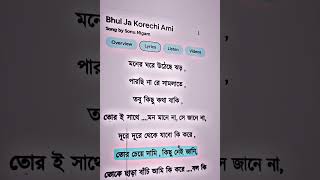 Bhul Ja Korechi Ami
Song by Sonu Nigam
Overview Lyrics Listen Videos
মনের ঘরে উঠেছে ঝড়,
পারছি না রে সামলাতে,
তবু কিছু কথা বাকি,
তোর ই সাথে ...মন মানে না, সে জানে না,
দূরে দূরে থেকে যাবো কি করে,
তোর চেয়ে দামি, কিছু নেই জানি,
তোকে ছাড়া বাঁচি আমি কি করে ...বল কি